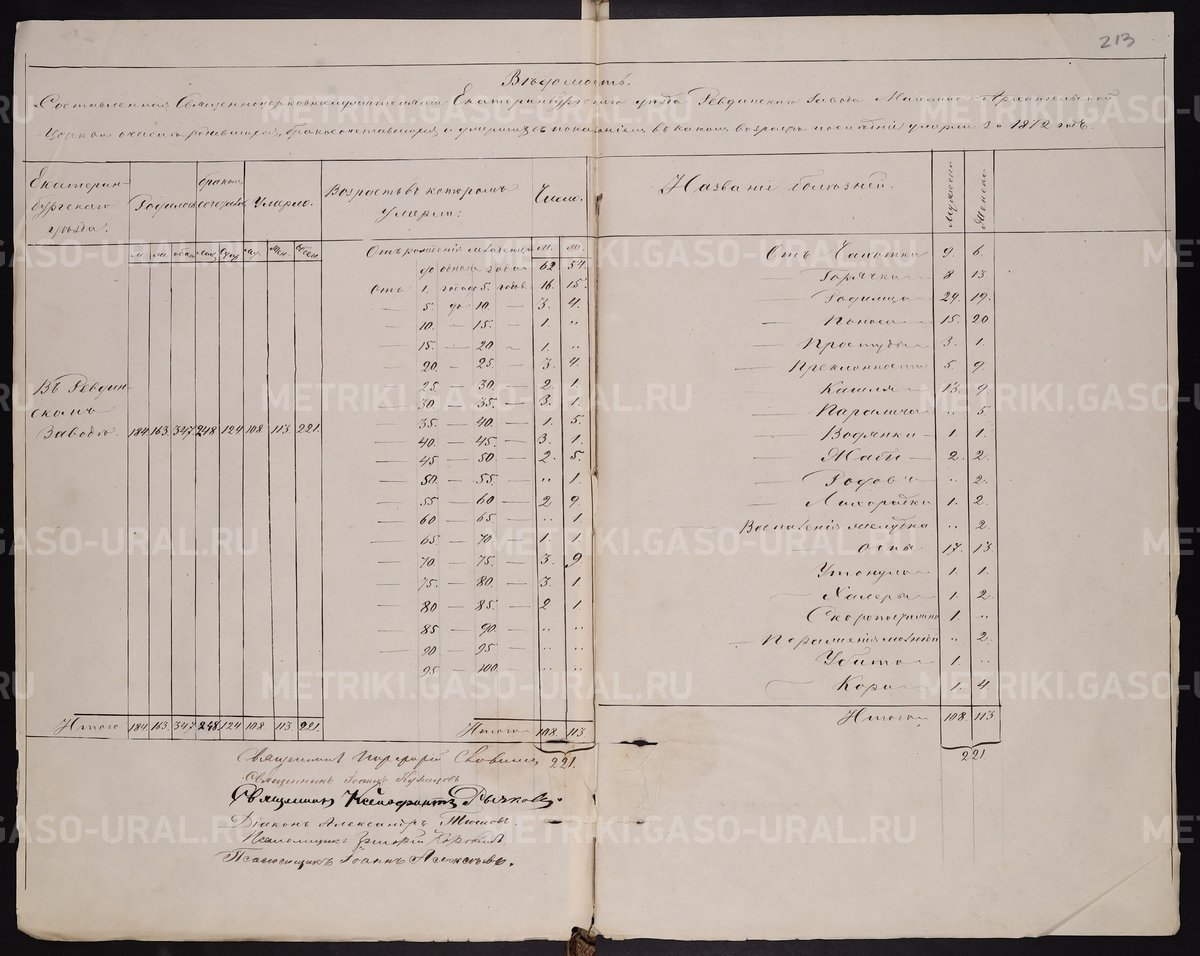 213
Вѣдомость.
Составленная Священноцерковнослужителями Екатеринбургскаго уѣзда Ревдинскаго Завода Михаило-Архангельской
Церкви о числѣ родившихся, бракосочетавшихся и умершихъ съ показаніемъ въ какомъ возрастѣ послѣдніе умерли за 1872 годъ.
Екатерин-
бургскаго
уѣзда.
Родилось
браком.
сочеталось
Умерло.
Возрастъ въ которомъ
умерли.
Число.
Названіе болѣзней.
Мужеска
Женска
Въ Ревдин-
скомъ
Заводѣ. 184. 163. 347. 248 124 108. 113. 221.
Отъ рожденія младенцы М. Ж.
до одного года 62. 54.
Отъ 1. года до 5. годовъ 16. 15.
— 5. до 10. — 3. 4.
— 10. — 15. — 1. "
— 15. — 20. — 1. "
— 20. — 25. — 3. 4.
— 25. — 30. — 2. 1.
— 30. — 35. — 3. 1.
— 35. — 40. — 1. 5.
— 40. — 45. — 3. 1.
— 45 — 50. — 2. 5.
— 50. — 55. — " 1.
— 55 — 60 — 2 9.
— 60 — 65. — " 1.
— 65. — 70. — 1. 1.
— 70. — 75. — 3. 9
— 75. — 80. — 3. 1.
— 80 — 85. — 2 1.
— 85 — 90. — " "
— 90 — 95 — " "
— 95 — 100. — " "
Итого 184. 163. 347 248. 124 108. 113. 221.
Итого 108. 113.
221.
Отъ Чахотки 9. 6.
— Горячки 8 13.
— Родимца 29. 19.
— Поноса 15. 20
— Простуды 3. 1.
— Преклонности 5. 9.
Кашля 13. 9
— Паралича " 5.
— Водянки 1. 1.
— Жабы 2. 2.
— Родовъ " 2.
— Лихорадки 1. 2.
Воспаленія желудка " 2
— Оспы 17. 13
Утонуло 1. 1.
— Холеры 1. 2
Скоропостижно 1. "
— Пораженія молніей " 2
Убито 1. "
— Кори 1. 4.
Итого 108. 113
221
Священникъ Порфирій
Священникъ Іоаннъ Кузнецовъ
Священникъ Ксенофонтъ Рычковъ.
Діаконъ Александръ
Псаломщикъ Григорій
Псаломщикъ Іоаннъ Алексѣевъ.
METRIKI.GASO-URAL.RU